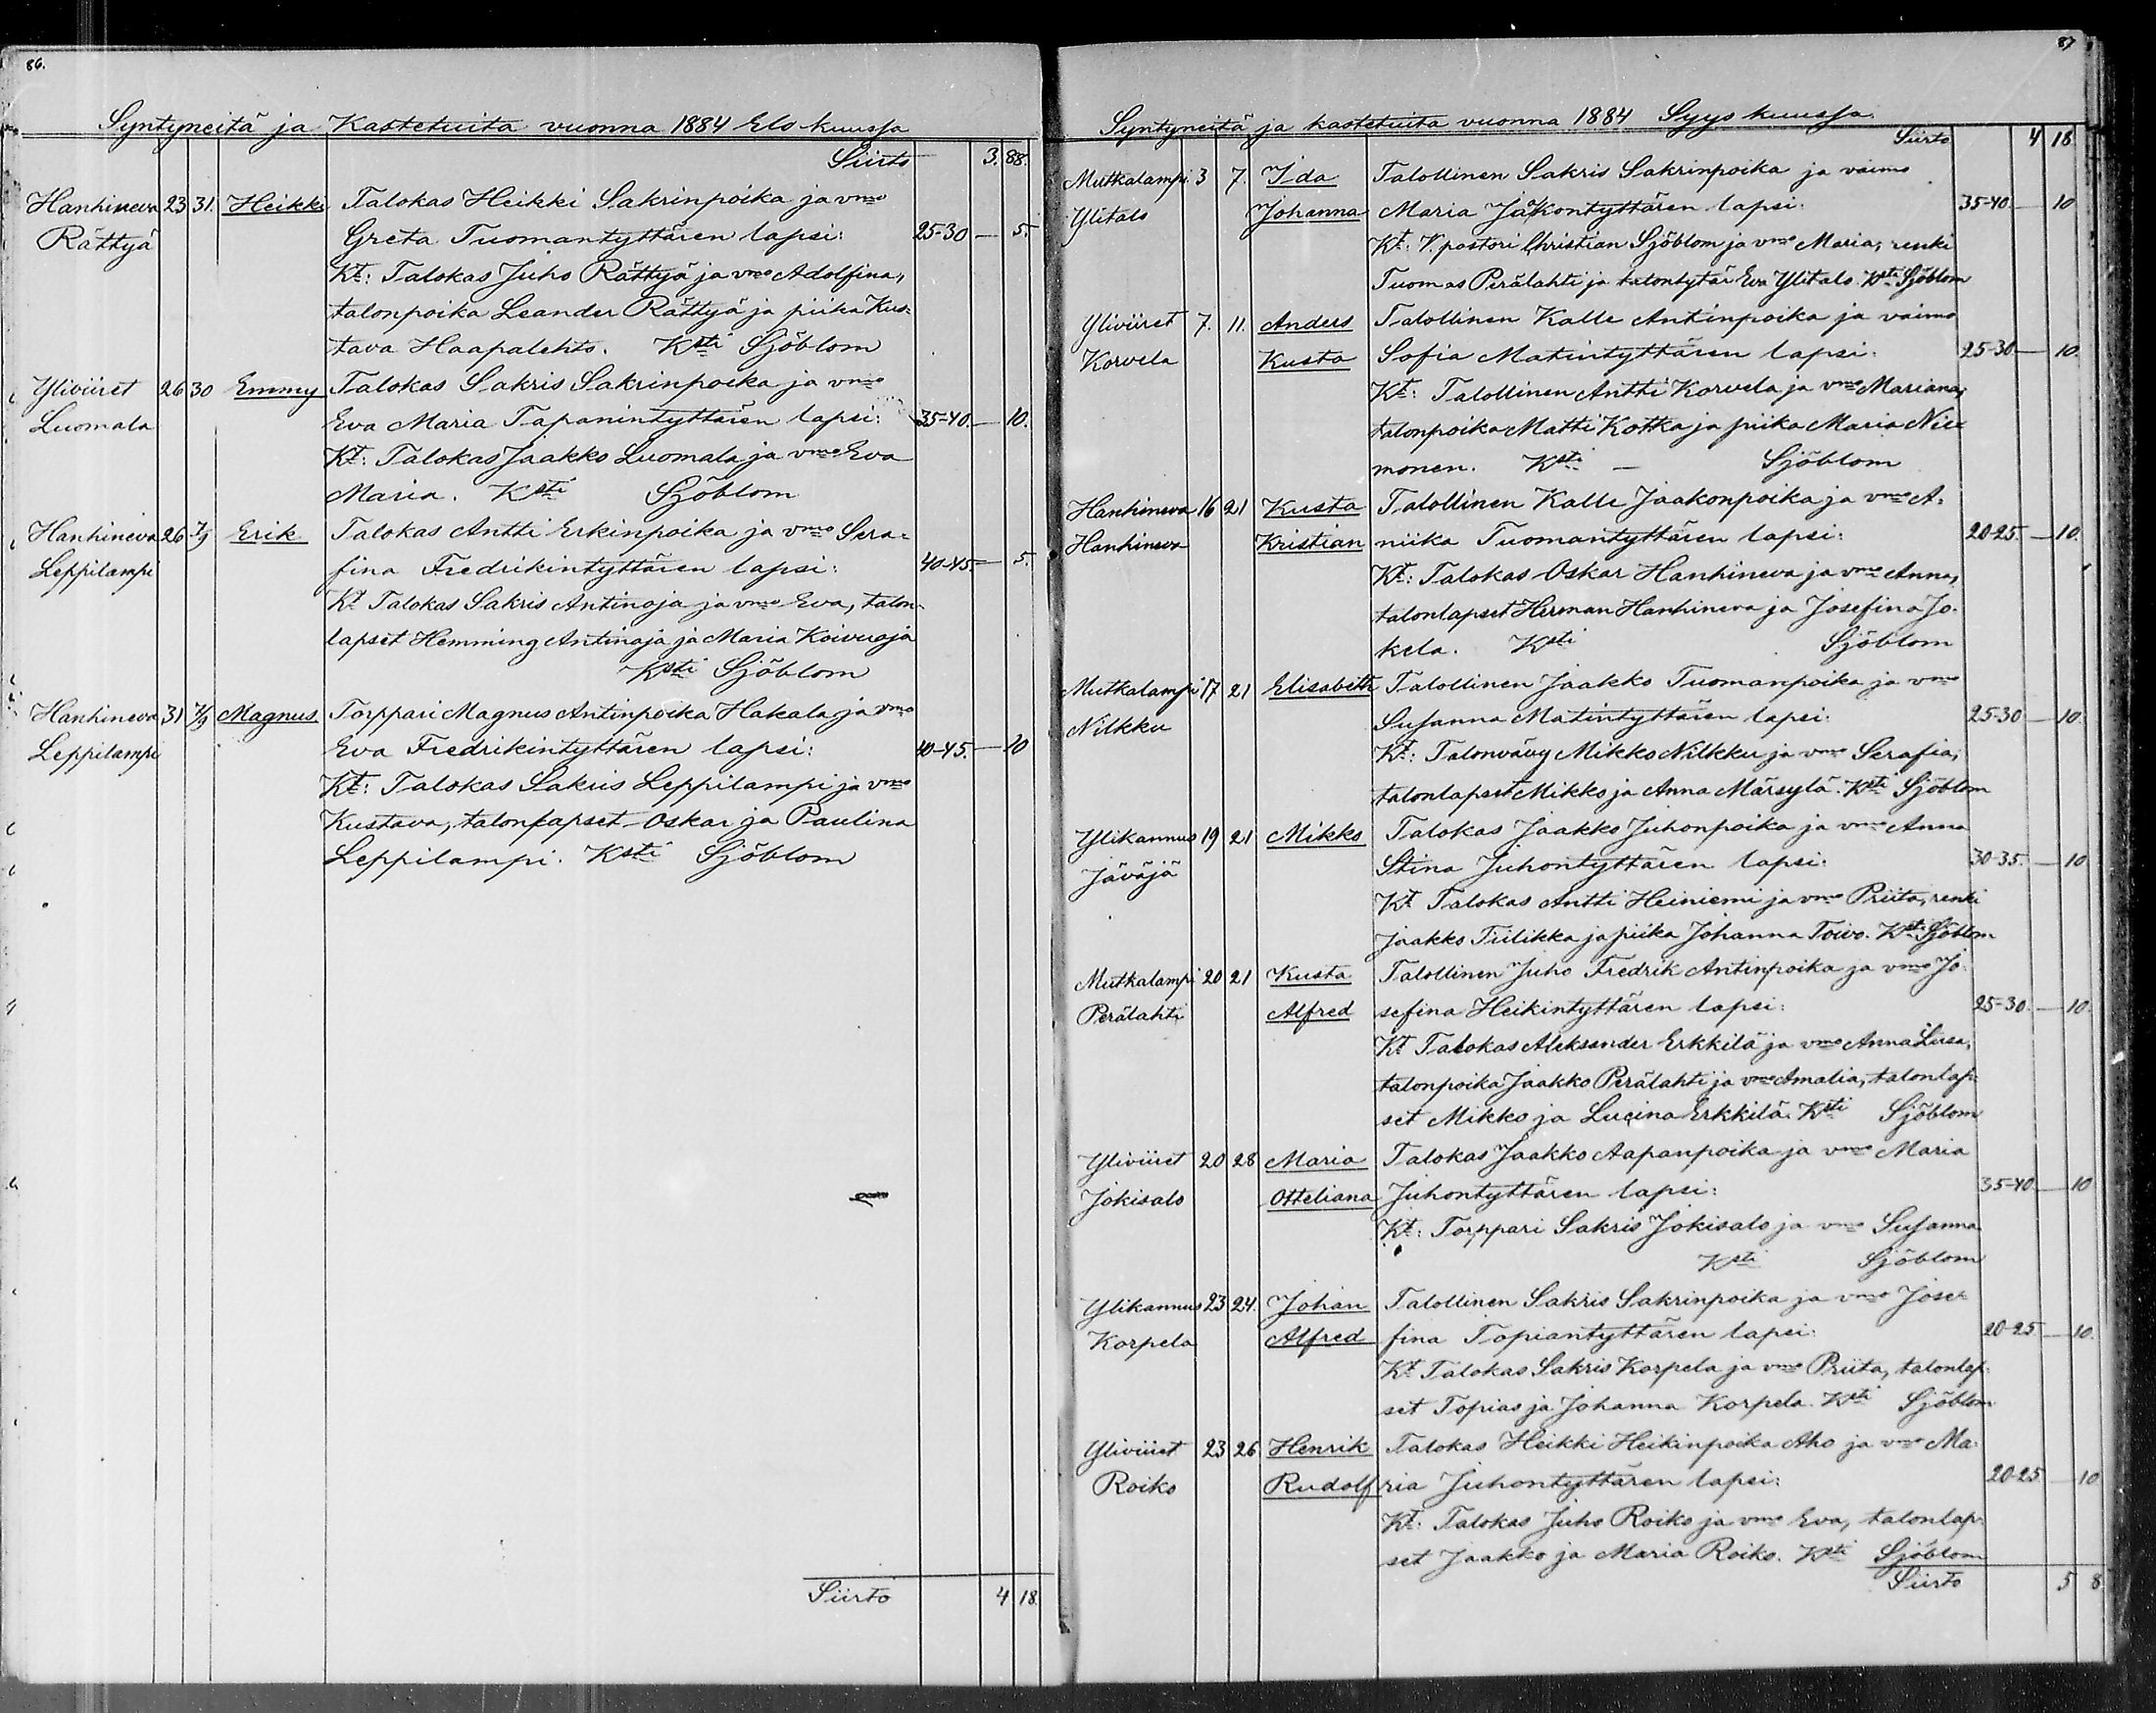 86.
Syntyneitä ja Kastetuita vuonna 1884 Elo kuussa
Siirto 3. 88.
Hanhineva 23 31. Heikki Talokas Heikki Sakrinpoika ja vmo
Rättyä Greta Tuomantyttären lapsi: 25-30 — 5.
Kt: Talokas Juho Rättyä ja vmo Adolfina,
talonpoika Leander Rättyä ja piika Kus-
tava Haapalehto. Ksti Sjöblom
Yliviiret 26 30 Emmy Talokas Sakris Sakrinpoika ja vmo
Luomala Eva Maria Tapanintyttären lapsi: 35-40. — 10.
Kt: Talokas Jaakko Luomala ja vmo Eva
Maria. Ksti Sjöblom
Hanhineva 26 7/9 Erik Talokas Antti Erkinpoika ja vmo Sera-
Leppilampi fina Fredrikintyttären lapsi: 40-45. — 5.
Kt Talokas Sakris Antinoja ja vmo Eva, talon-
lapset Hemming Antinoja ja Maria Koivuoja
Ksti Sjöblom
Hanhineva 31 7/9 Magnus Torppari Magnus Antinpoika Hakala ja vmo
Leppilampi Eva Fredrikintyttären lapsi: 40-45. — 10
Kt: Talokas Sakris Leppilampi ja vmo
Kustava, talonlapset Oskar ja Paulina
Leppilampi. Ksti Sjöblom
Siirto 4 18.
87
Syntyneitä ja kastetuita vuonna 1884 Syys kuussa
Siirto 4 18
Mutkalampi 3 7. Ida Talollinen Sakris Sakrinpoika ja vaimo
Ylitalo Johanna Maria Jaakontyttären lapsi: 35-40. — 10
Kt: V. pastori Christian Sjöblom ja vmo Maria, renki
Tuomas Perälahti ja talontytär Eva Ylitalo. Ksti Sjöblom
Yliviiret 7. 11. Anders Talollinen Kalle Antinpoika ja vaimo
Korvela Kusta Sofia Matintyttären lapsi: 25-30 — 10.
Kt: Talollinen Antti Korvela ja vmo Mariana,
talonpoika Matti Kotka ja piika Maria Nie-
monen. Ksti — Sjöblom
Hanhineva 16 21 Kusta Talollinen Kalle Jaakonpoika ja vmo A-
Hanhineva Kristian niika Tuomantyttären lapsi: 20-25. — 10.
Kt: Talokas Oskar Hanhineva ja vmo Anna,
talonlapset Herman Hanhineva ja Josefina Jo-
kela. Ksti Sjöblom
Mutkalampi 17 21 Elisabeth Talollinen Jaakko Tuomanpoika ja vmo
Nilkku Susanna Matintyttären lapsi: 25-30 — 10.
Kt: Talonvävy Mikko Nilkku ja vmo Serafia,
talonlapset Mikko ja Anna Märsylä. Ksti Sjöblom
Ylikannus 19 21 Mikko Talokas Jaakko Juhonpoika ja vmo Anna
Jäväjä Stina Juhontyttären lapsi: 30-35. — 10
Kt Talokas Antti Heiniemi ja vmo Priita, renki
Jaakko Tiilikka ja piika Johanna Toivo. Ksti Sjöblom
Mutkalampi 20 21 Kusta Talollinen Juho Fredrik Antinpoika ja vmo Jo-
Perälahti Alfred sefina Heikintyttären lapsi: 25-30. — 10.
Kt Talokas Aleksander Erkkilä ja vmo Anna Liisa,
talonpoika Jaakko Perälahti ja vmo Amalia, talonlap-
set Mikko ja Lucina Erkkilä. Ksti Sjöblom
Yliviiret 20 28 Maria Talokas Jaakko Aapanpoika ja vmo Maria
Jokisalo Otteliana Juhontyttären lapsi: 35-40. — 10
Kt: Torppari Sakris Jokisalo ja vmo Susanna
Ksti Sjöblom
Ylikannus 23 24. Johan Talollinen Sakris Sakrinpoika ja vmo Jose-
Korpela Alfred fina Topiantyttären lapsi: 20-25 — 10.
Kt Talokas Sakris Korpela ja vmo Priita, talonlap-
set Topias ja Johanna Korpela. Ksti Sjöblom
Yliviiret 23 26 Henrik Talokas Heikki Heikinpoika Aho ja vmo Ma-
Roiko Rudolf ria Juhontyttären lapsi: 20-25 — 10
Kt: Talokas Juho Roiko ja vmo Eva, talonlap-
set Jaakko ja Maria Roiko. Ksti Sjöblom
Siirto 5 8.